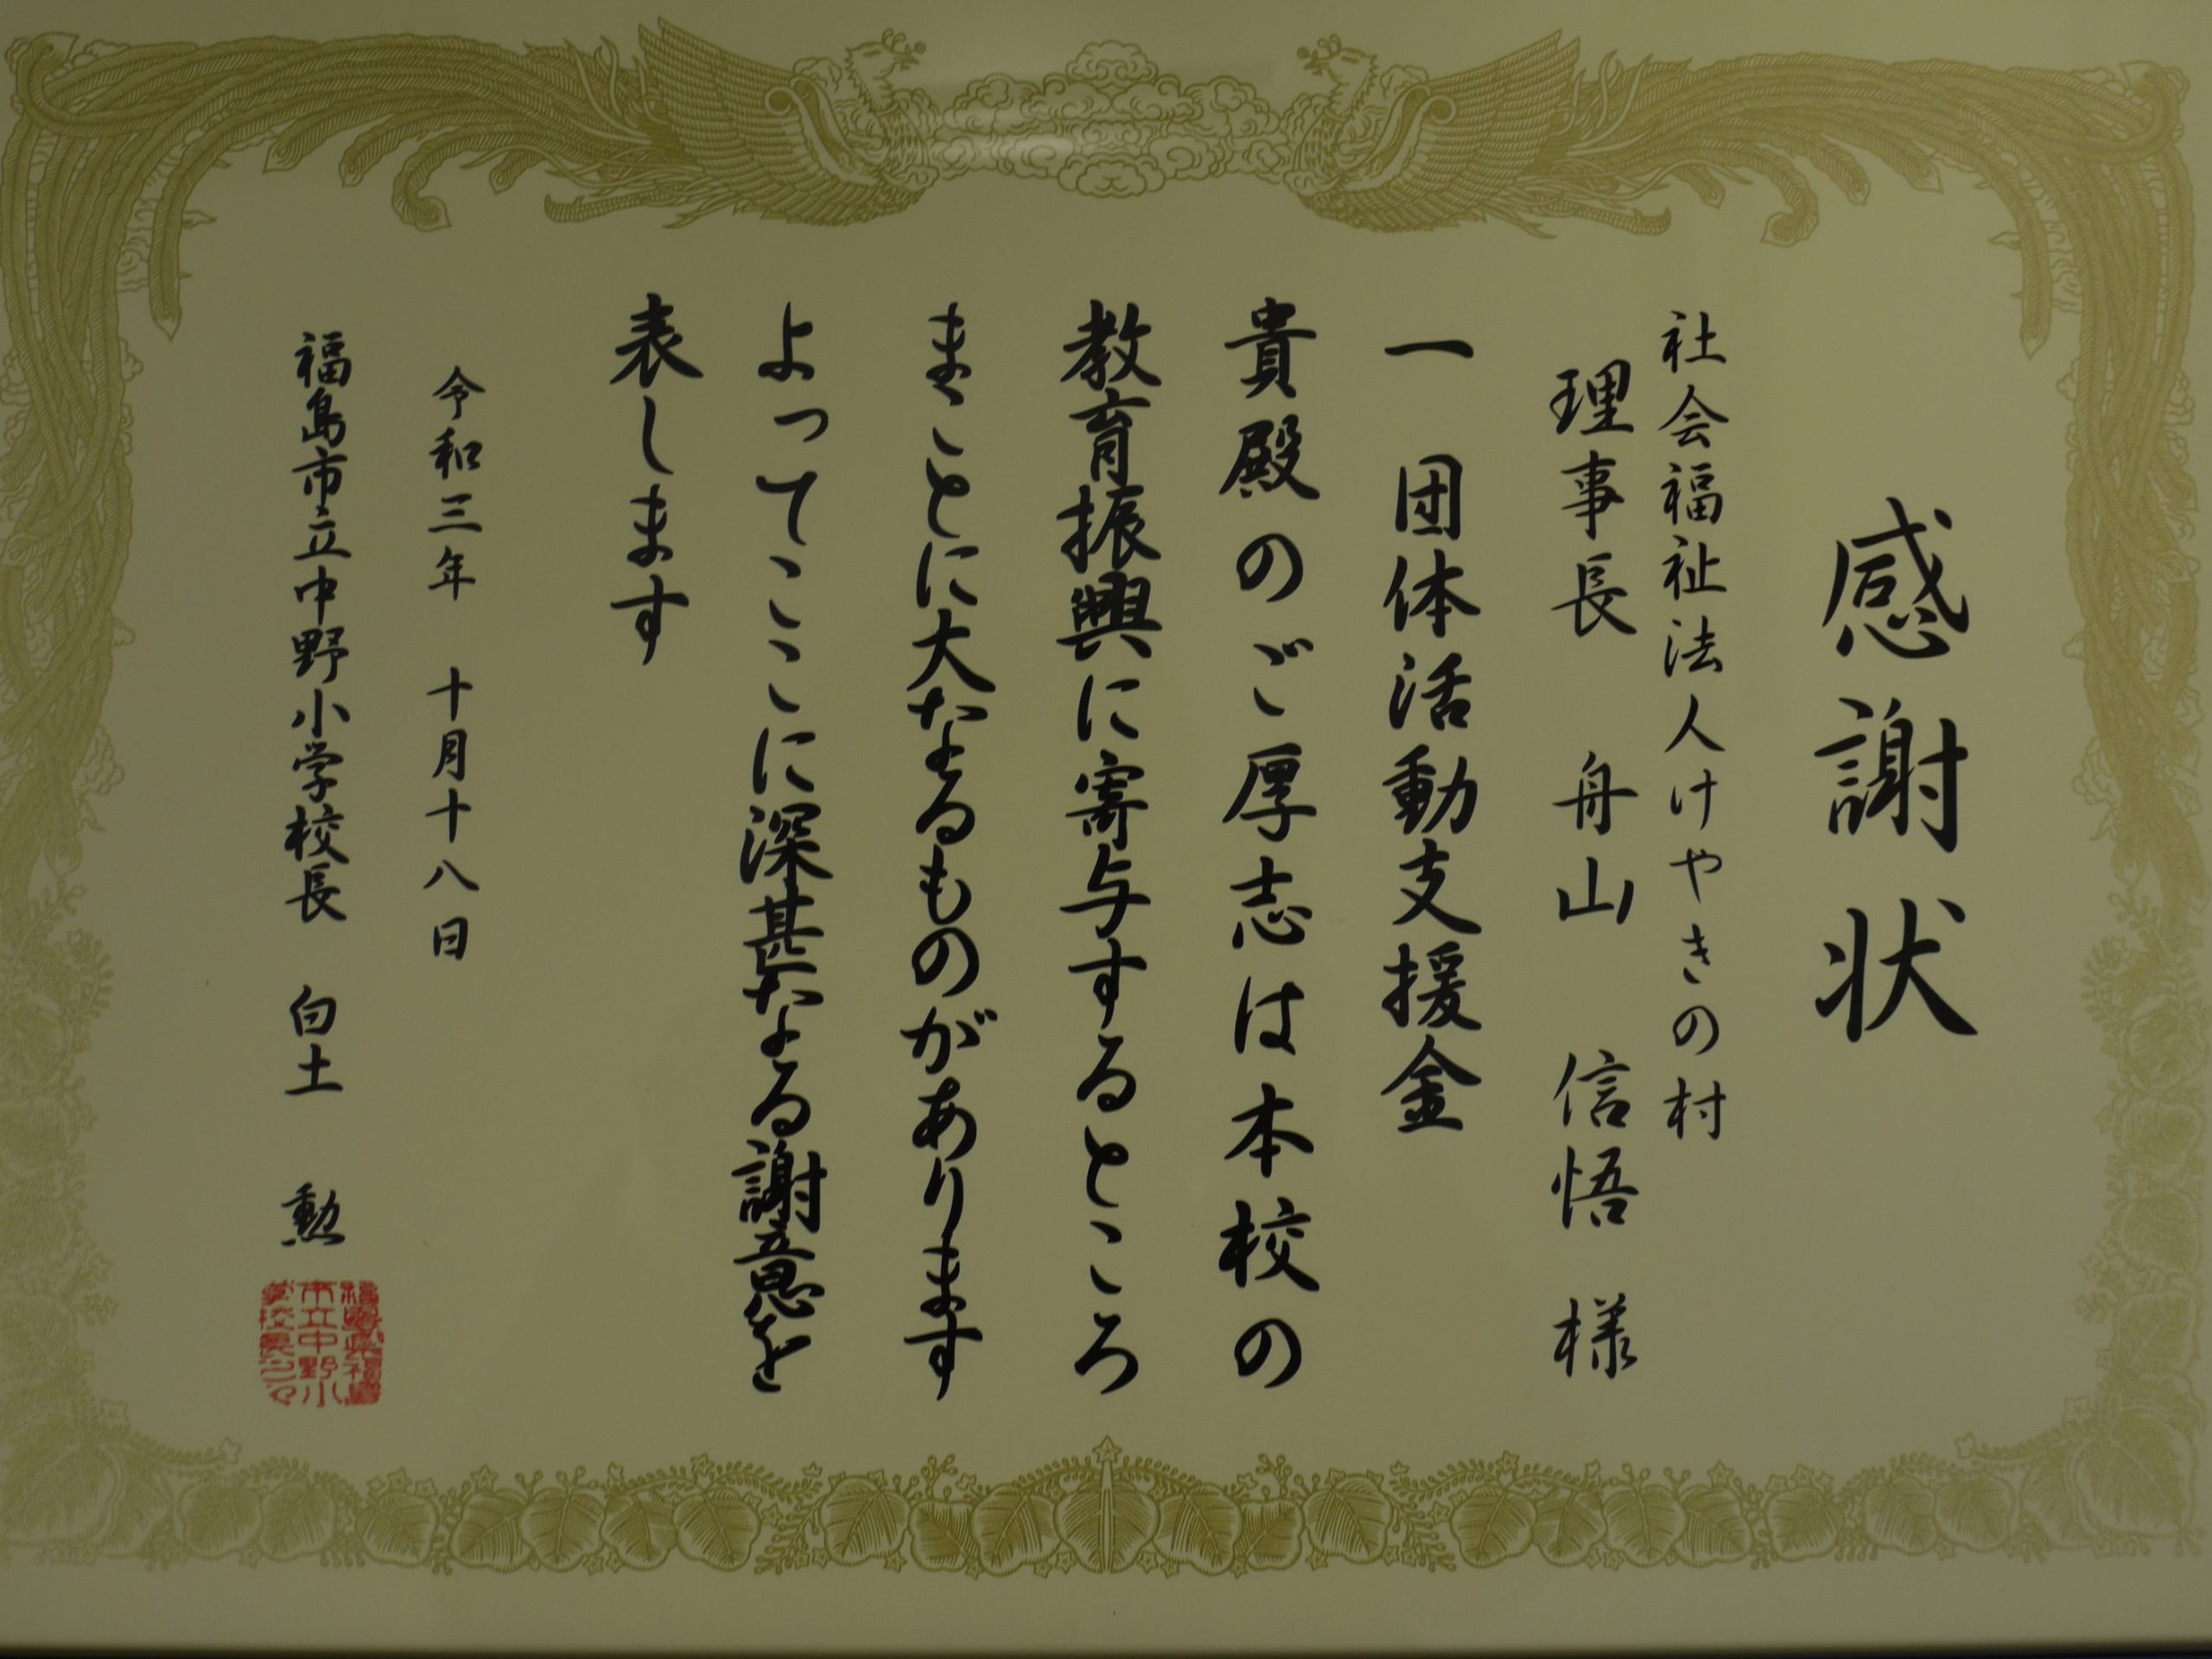 感謝状
社会福祉法人けやきの村
理事長 舟山 信悟 様
一 団体活動支援金
貴殿のご厚志は本校の
教育振興に寄与するところ
まことに大なるものがあります
よってここに深甚なる謝意を
表します
令和三年 十月十八日
福島市立中野小学校長 白土 勲
福島県福島
市立中野小
学校長之印